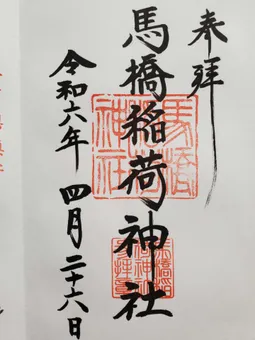 奉拝
馬橋稲荷神社
令和六年 四月二十六日
馬橋
神社